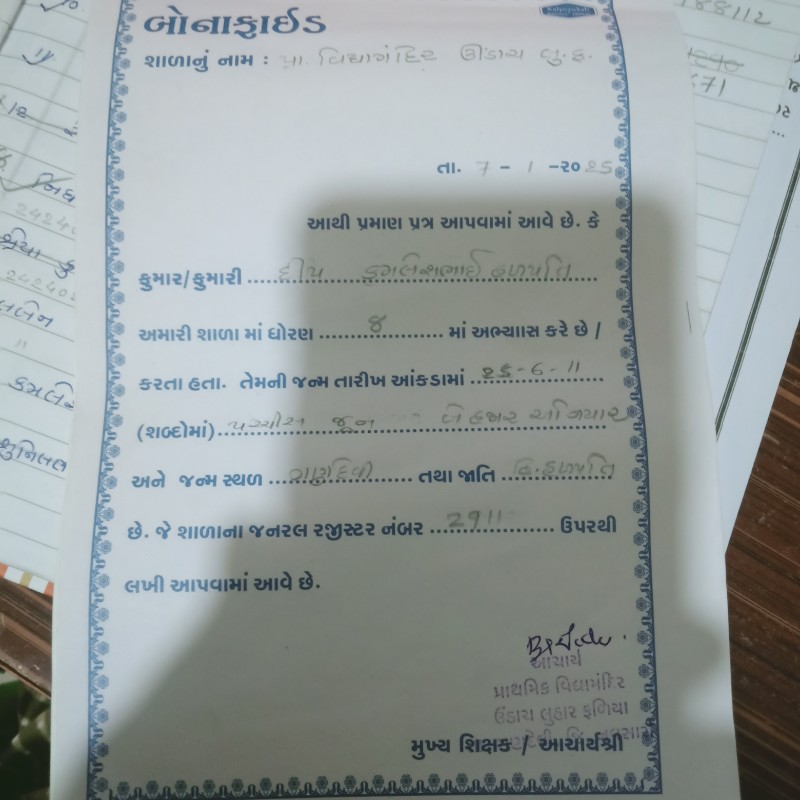 બોનાફાઈડ
શાળાનું નામ : પ્રા. વિદ્યામંદિર ઊંડાચ લુ.ફ.
તા. 7 - 1 -૨૦ 25
આથી પ્રમાણ પ્રત્ર આપવામાં આવે છે. કે
કુમાર/કુમારી ........ દીપ કમલેશભાઈ હળપતિ
અમારી શાળા માં ધોરણ ........ 8 ........ માં અભ્યાસ કરે છે /
કરતા હતા. તેમની જન્મ તારીખ આંકડામાં 25-6-11
(શબ્દોમાં) પચ્ચીસ જૂન બે હજાર અગિયાર
અને જન્મ સ્થળ ........ તથા જાતિ હિ.હળપતિ
છે. જે શાળાના જનરલ રજીસ્ટર નંબર 2911 ઉપરથી
લખી આપવામાં આવે છે.
આચાર્ય
પ્રાથમિક વિદ્યામંદિર
ઉંડાચ લુહાર ફળિયા
મુખ્ય શિક્ષક / આચાર્યશ્રી
188112
671
242402
કમલેન
સુનિલલ